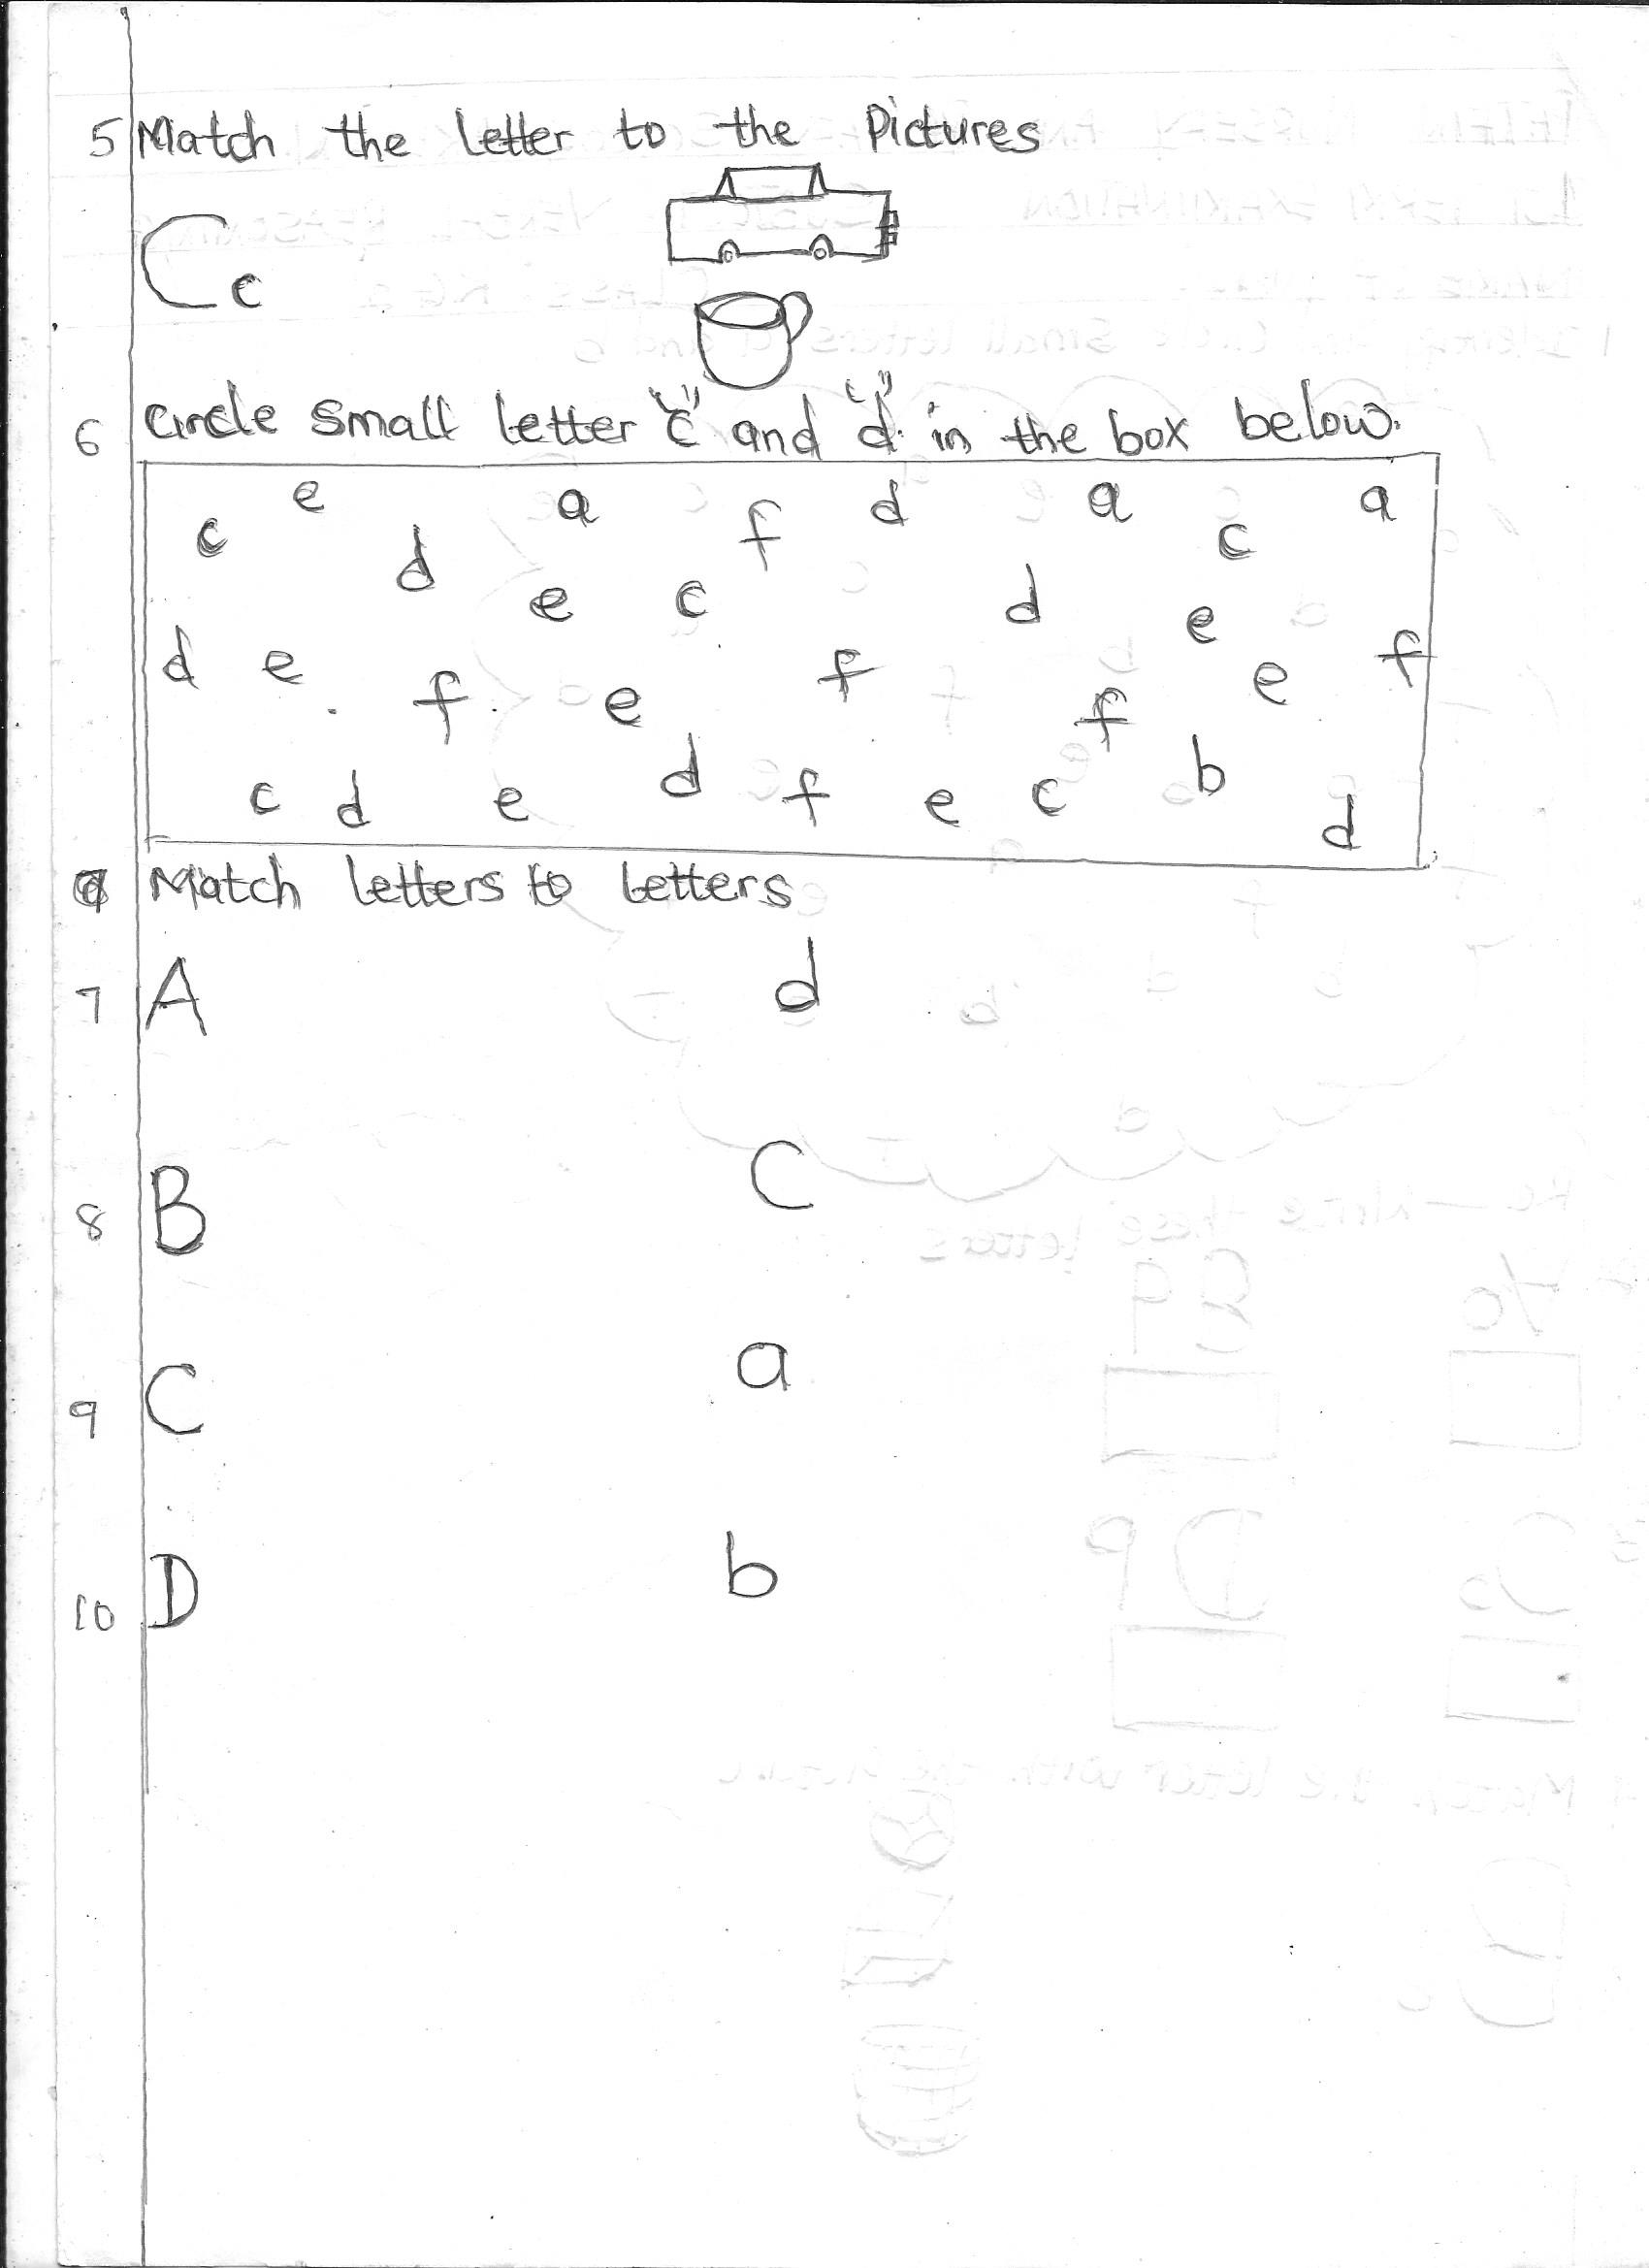 5 Match the letter to the Pictures
Cc
6 Circle small letter "c" and "d" in the box below.
e a f d a a
c d c
e c d e
d e f e f f e f
c d e d f e c b d
Match letters to letters
7 A d
8 B C
9 C a
10 D b